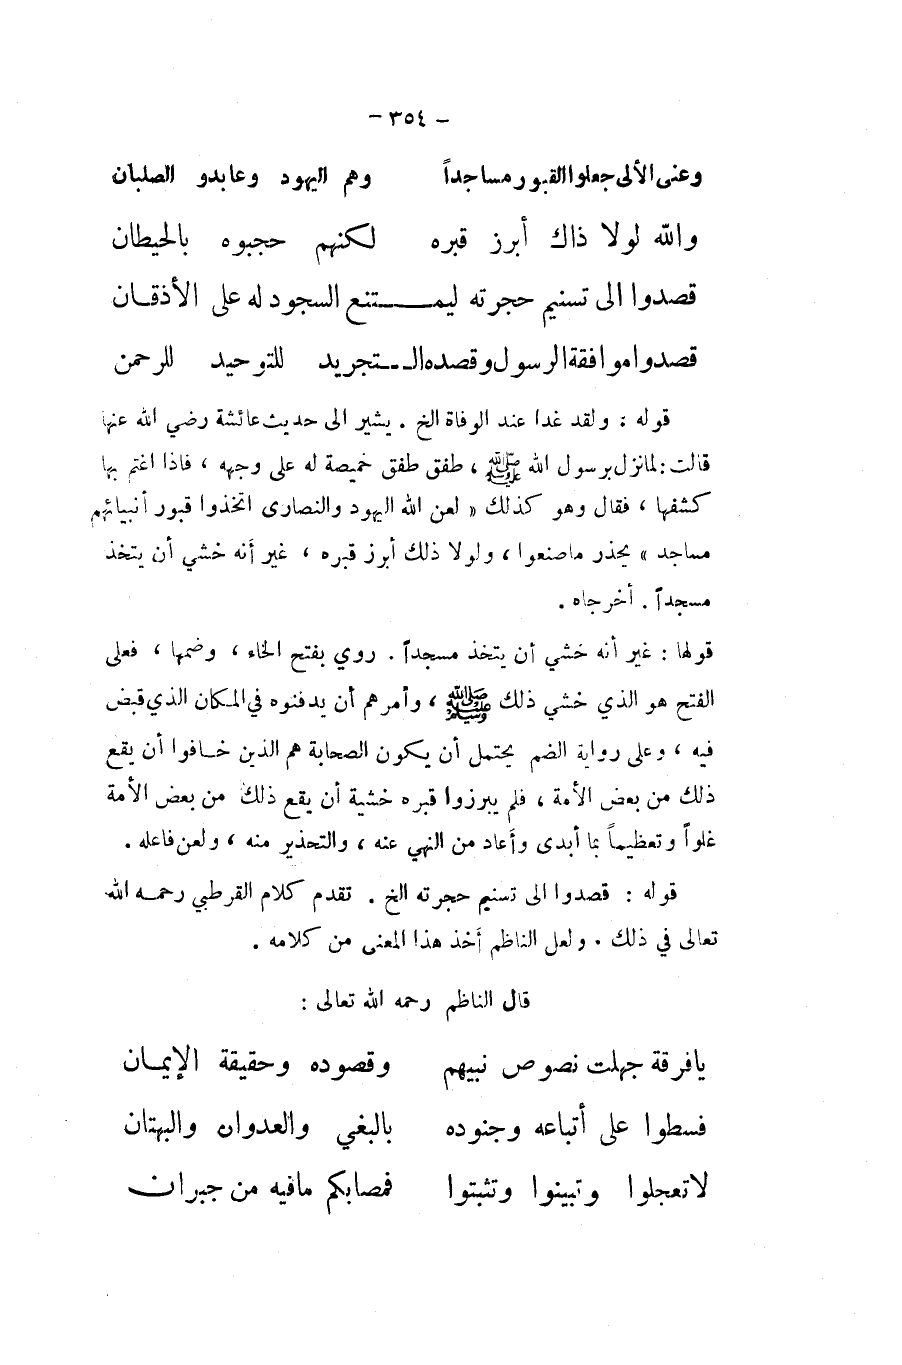 - ٣٥٤ -
وعنى الألى جعلوا القبور مساجداً وهم اليهود وعابدو الصلبان
والله لولا ذاك أبرز قبره لكنهم حجبوه بالحيطان
قصدوا الى تسنيم حجرته ليمـــتنع السجود له على الأذقان
قصدوا موافقة الرسول وقصده الـــتجريد للتوحيد للرحمن
قوله : ولقد غدا عند الوفاة الخ . يشير الى حديث عائشة رضي الله عنها
قالت : لما نزل برسول الله ﷺ ، طفق طفق خميصة له على وجهه ، فاذا اغتم بها
كشفها ، فقال وهو كذلك « لعن الله اليهود والنصارى اتخذوا قبور أنبيائهم
مساجد » يحذر ماصنعوا ، ولولا ذلك أبرز قبره ، غير أنه خشي أن يتخذ
مسجداً . أخرجاه .
قولها : غير أنه خشي أن يتخذ مسجداً . روي بفتح الخاء ، وضمها ، فعلى
الفتح هو الذي خشي ذلك ﷺ ، وأمرهم أن يدفنوه في المكان الذي قبض
فيه ، وعلى رواية الضم يحتمل أن يكون الصحابة هم الذين خافوا أن يقع
ذلك من بعض الأمة ، فلم يبرزوا قبره خشية أن يقع ذلك من بعض الأمة
غلواً وتعظيماً بما أبدى وأعاد من النهي عنه ، والتحذير منه ، ولعن فاعله .
قوله : قصدوا الى تسنيم حجرته الخ . تقدم كلام القرطبي رحمه الله
تعالى في ذلك . ولعل الناظم أخذ هذا المعنى من كلامه .
قال الناظم رحمه الله تعالى :
يافرقة جهلت نصوص نبيهم وقصوده وحقيقة الإيمان
فسطوا على أتباعه وجنوده بالبغي والعدوان والبهتان
لاتعجلوا وتبينوا وتثبتوا فمصابكم مافيه من جبران